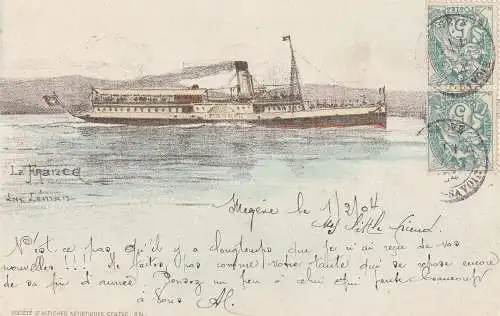 La France
Lac Léman
Megève le 1/2/04
My little friend.
N'est ce pas qu'il y a longtemps que je n'ai reçu de vos
nouvelles!!! Ne faites pas comme votre tante qui se repose encore
de sa fin d'année. Pensez un peu à celui qui pense beaucoup
à vous
SOCIÉTÉ D'AFFICHES ARTISTIQUES GENÈVE